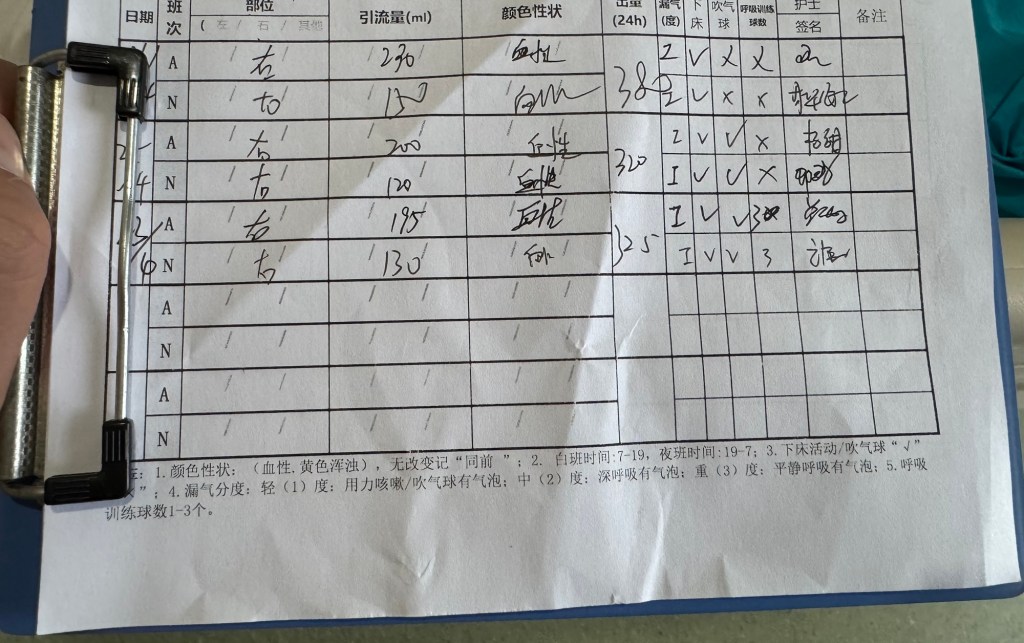 日期 班次 部位 引流量(ml) 颜色性状 出量(24h) 漏气(度) 下床 吹气球 呼吸训练球数 护士签名 备注
( 左 / 右 / 其他
A / 右 / / 230 / / 血性 / I √ × ×
N / 右 / / 150 / / / 380 I √ × ×
A / 右 / / 200 / / 血性 / I √ √ ×
N / 右 / / 120 / / 血性 / 320 I √ √ ×
3/ A / 右 / / 195 / / 血性 / I √ √ 3
N / 右 / / 130 / / / 325 I √ √ 3
A / / / / / /
N / / / / / /
A / / / / / /
N / / / / / /
注：1.颜色性状：（血性.黄色浑浊），无改变记“同前 ”；2. 白班时间:7-19，夜班时间:19-7；3.下床活动/吹气球“√”
×”；4.漏气分度：轻（1）度：用力咳嗽/吹气球有气泡；中（2）度：深呼吸有气泡；重（3）度：平静呼吸有气泡；5.呼吸
训练球数1-3个。